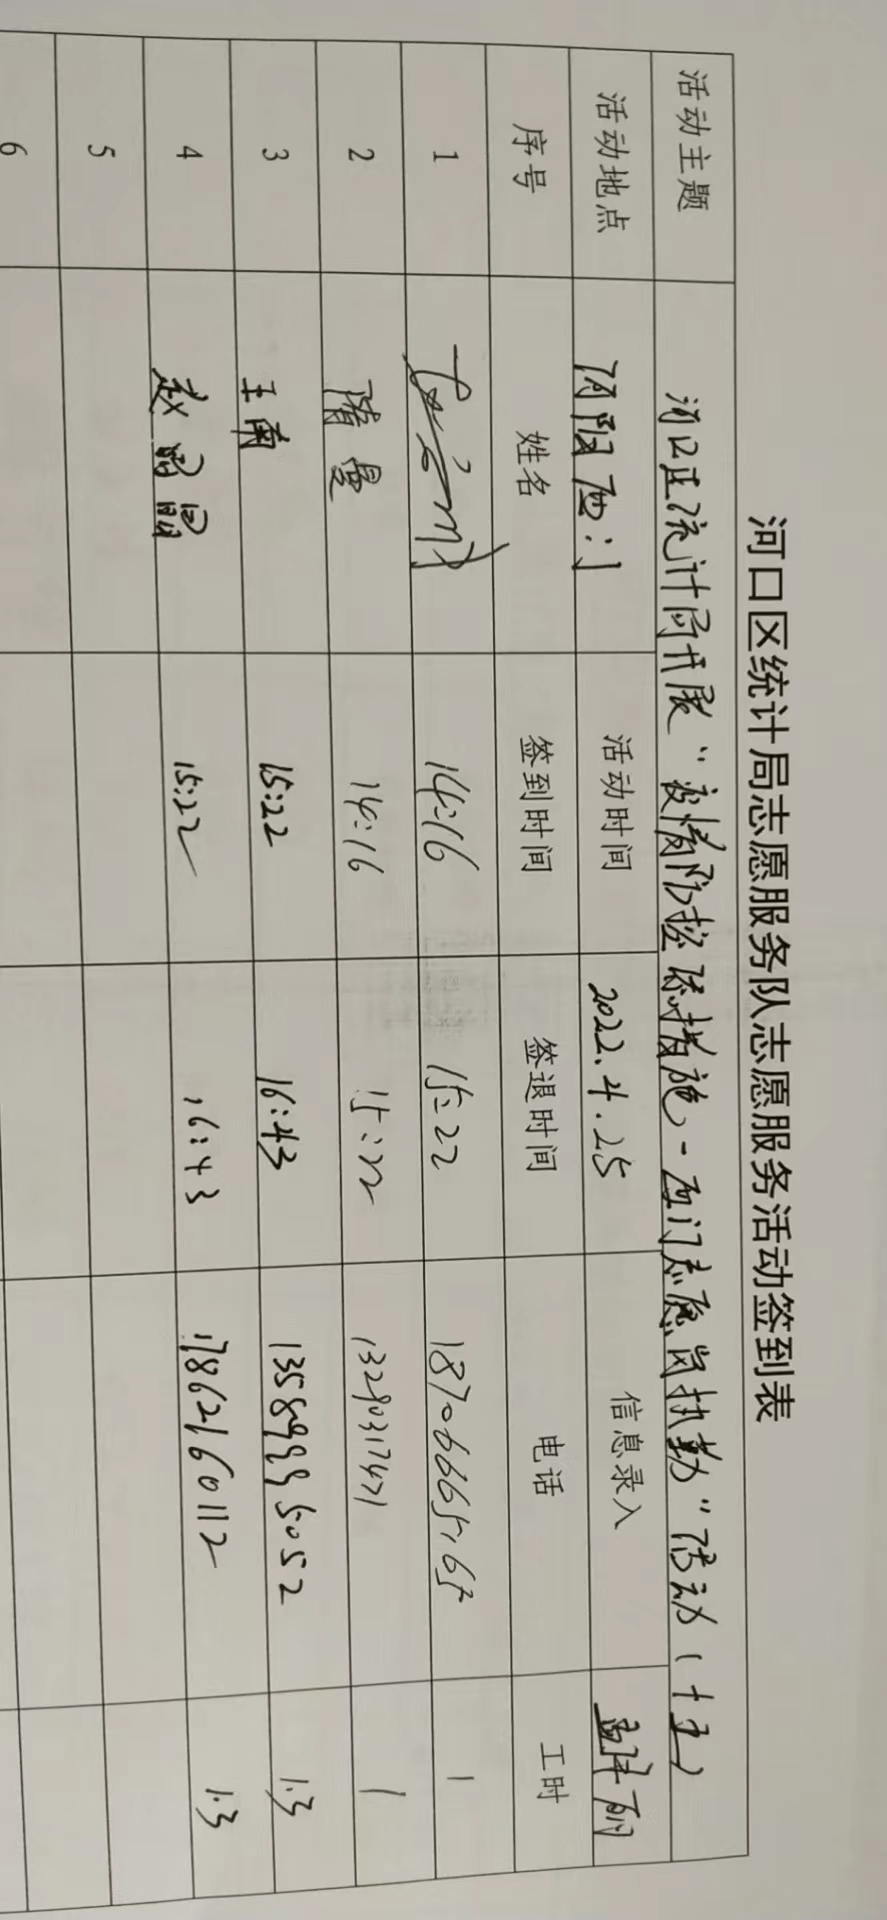 河口区统计局志愿服务队志愿服务活动签到表
活动主题 河口区统计局开展“疫情防控 措施-西门志愿岗执勤”活动(十五)
活动地点 河阳西门 活动时间 2022.4.25 信息录入
序号 姓名 签到时间 签退时间 电话 工时
1 14:16 15:22 18706665165 1
2 隋曼 14:16 15:22 13290317471 1
3 王甫 15:22 16:43 13589995052 1.3
4 赵明明 15:22 16:43 17862160112 1.3
5
6